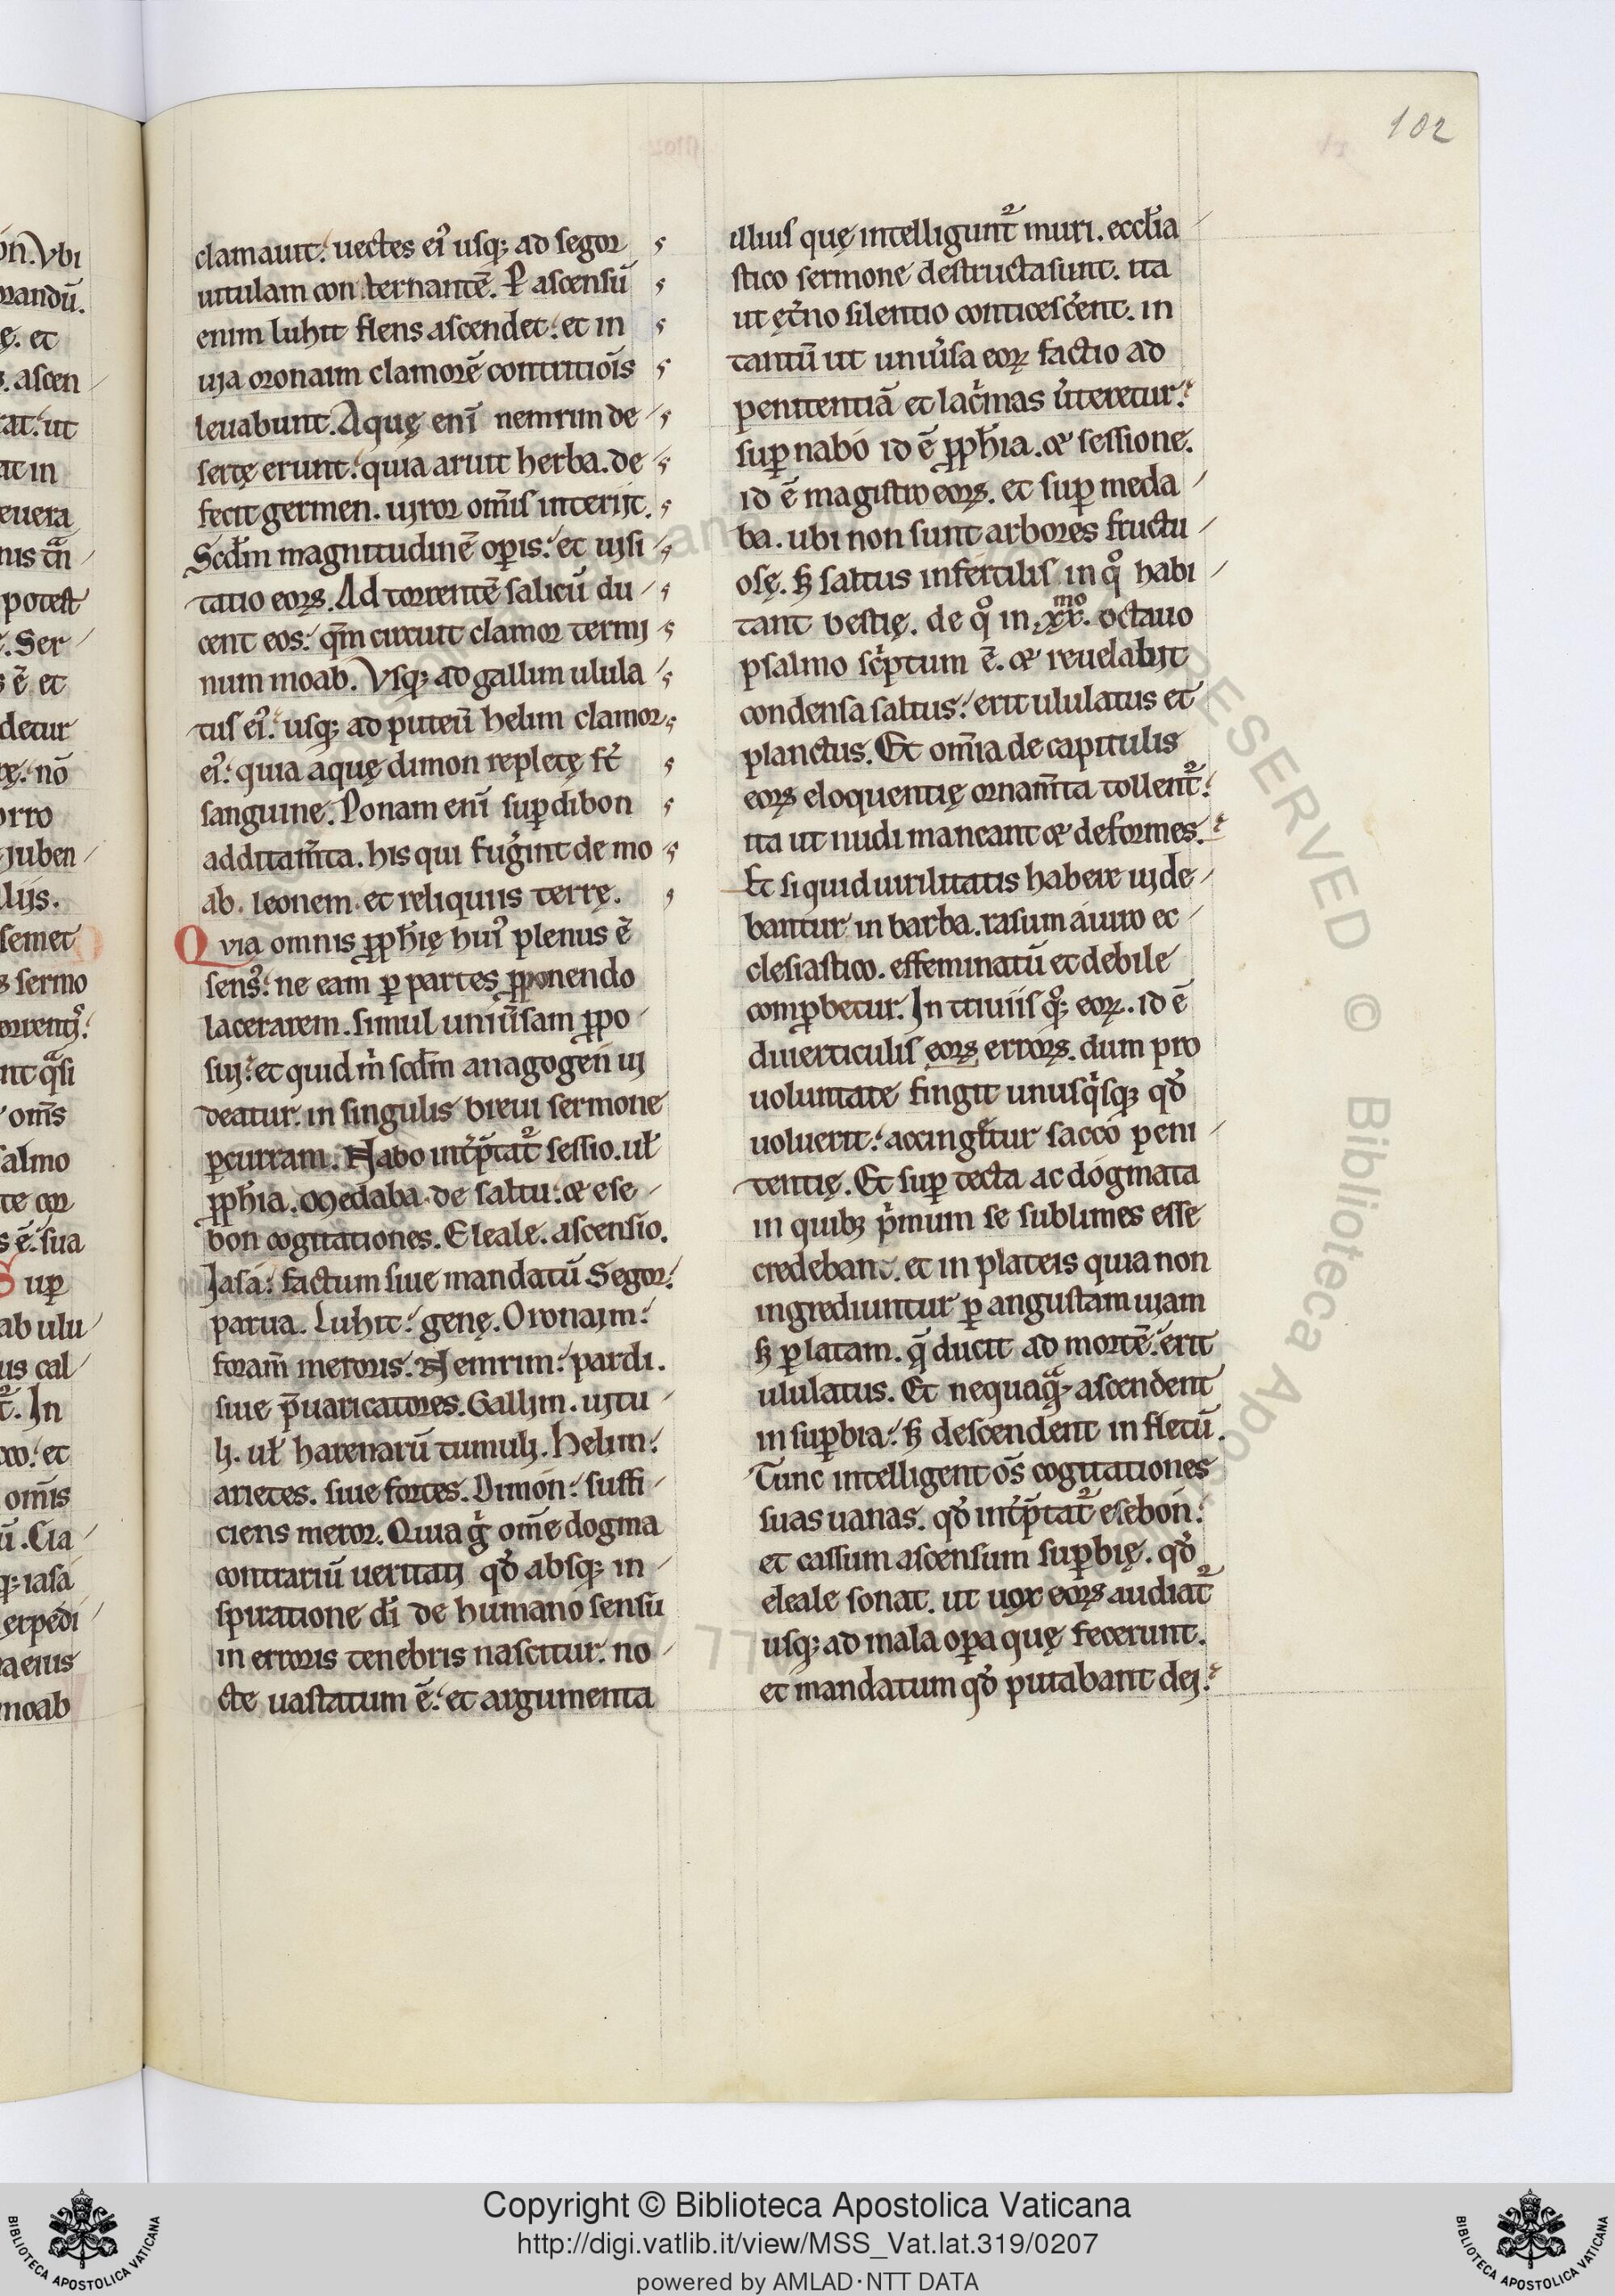 102
clamauit. uectes ei᷒ usq; ad segor
uitulam conternantē. P̲ ascensū
enim luhit flens ascendet. et in
uia oronaim clamorē contritiōis
leuabunt. Aquę enī nemrim de
sertę erunt. quia aruit herba. de
fecit germen. uiror om̄is interijt.
Scd̄m magnitudinē op̲is. et uisi
tatio eoꝝ. Ad torrentē salicū du
cent eos. qm̄ circuit clamor termi
num moab. Vsq; ad gallim ulula
tus ei᷒. usq; ad puteū helim clamor
ei᷒. quia aquę dimon repletę st̄
sanguine. Ponam enī sup̲ dibon
additam̄ta. his qui fug̓int de mo
ab. leonem. et reliquiis terrę.
Qvia omnis ꝓph̄ię hui᷒ plenus ē
sens᷒. ne eam ꝑ partes ꝓponendo
lacerarem. simul uniu̓sam ꝓpo
sui. et quid m̓ scd̄m anagogen ui
deatur. in singulis breui sermone
ꝑcurram. Nabo int̓p̄tat᷑ sessio. ul̄
ꝓph̄ia. Medaba. de saltu. & ese
bon cogitationes. Eleale. ascensio.
Iasa. factum siue mandatū Segor.
parua. Luhit. genę. Oronaim.
foram̄ meroris. Nemrim. pardi.
siue p̄uaricatores. Gallim. uitu
li. ul̄ harenarū tumuli. Helim.
arietes. siue fortes. Dimon. suffi
ciens meror. Quia g̓ om̄e dogma
contrariū ueritati qđ absq; in
spiratione dī de humano sensu
in erroris tenebris nascitur. no
cte uastatum ē. et argumenta
illius quę intelligunt᷑ muri. eccl̄ia
stico sermone destructa sunt. ita
ut ęt̓no silentio conticesc̓ent. in
tantū ut uniu̓sa eoꝝ factio ad
penitentiā et lac̓mas u̓teretur.
sup̲ nabo id ē ꝓph̄ia. & sessione.
id ē magistro eoꝝ. et sup̲ meda
ba. ubi non sunt arbores fructu
osę. sꝫ saltus infertilis in qͦ habi
tant bestię. de qͦ in .xx.mo octauo
psalmo sc̓ptum ē. & reuelabit
condensa saltus. erit ululatus et
planctus. Et om̄ia de capitulis
eoꝝ eloquentię ornam̄ta tollent᷑.
ita ut nudi maneant & deformes.
Et si quid uirilitatis habere uide
bantur in barba. rasum a uiro ec
clesiastico. effeminatū et debile
comp̲betur. In triuiis qͦ; eoꝝ. id ē
diuerticulis eoꝝ erroꝝ. dum pro
uoluntate fingit unusq̓sq; qđ
uoluerit. accing̓tur sacco peni
tentię. Et sup̲ tecta ac dogmata
in quibꝫ p̓mum se sublimes esse
credebant. et in plateis quia non
ingrediuntur ꝑ angustam uiam
sꝫ ꝑ latam. q̄ ducit ad mortē. erit
ululatus. Et nequaqᷓ ascendent
in sup̲bia. sꝫ descendent in fletū.
Tunc intelligent os̄ cogitationes
suas uanas. qđ int̓p̄tat᷑ esebon.
et cassum ascensum sup̲bię. qđ
eleale sonat. ut uox eoꝝ audiat᷑
usq; ad mala op̲a quę fecerunt.
et mandatum qđ putabant dei.
Copyright © Biblioteca Apostolica Vaticana
http://digi.vatlib.it/view/MSS_Vat.lat.319/0207
powered by AMLAD·NTT DATA
BIBLIOTECA APOSTOLICA VATICANA
BIBLIOTECA APOSTOLICA VATICANA